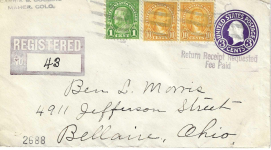 MAHER, COLO.
REGISTERED
43
1
UNITED STATES POSTAGE
3 CENTS
Return Receipt Requested
Fee Paid
Ben L. Morris
4911 Jefferson Street
Bellaire, Ohio
2688